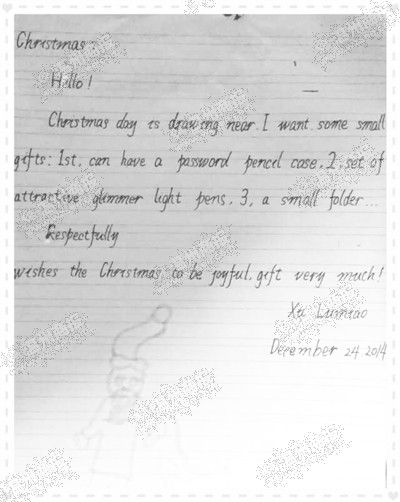 Christmas:
Hello!
Christmas day is drawing near. I want some small
gifts: 1st, can have a password pencel case, 2, set of
attractive glimmer light pens, 3, a small folder...
Respectfully
wishes the Christmas to be joyful, gift very much!
Xu Lumiao
December 24 2014